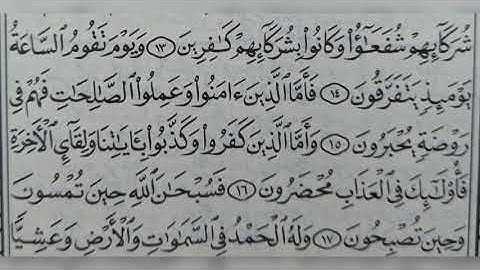 شُرَكَآئِهِمْ شُفَعَـٰٓؤُا۟ وَكَانُوا۟ بِشُرَكَآئِهِمْ كَـٰفِرِينَ ١٣ وَيَوْمَ تَقُومُ ٱلسَّاعَةُ
يَوْمَئِذٍ يَتَفَرَّقُونَ ١٤ فَأَمَّا ٱلَّذِينَ ءَامَنُوا۟ وَعَمِلُوا۟ ٱلصَّـٰلِحَـٰتِ فَهُمْ فِى
رَوْضَةٍ يُحْبَرُونَ ١٥ وَأَمَّا ٱلَّذِينَ كَفَرُوا۟ وَكَذَّبُوا۟ بِـَٔايَـٰتِنَا وَلِقَآئِ ٱلْـَٔاخِرَةِ
فَأُو۟لَـٰٓئِكَ فِى ٱلْعَذَابِ مُحْضَرُونَ ١٦ فَسُبْحَـٰنَ ٱللَّهِ حِينَ تُمْسُونَ
وَحِينَ تُصْبِحُونَ ١٧ وَلَهُ ٱلْحَمْدُ فِى ٱلسَّمَـٰوَٰتِ وَٱلْأَرْضِ وَعَشِيًّا